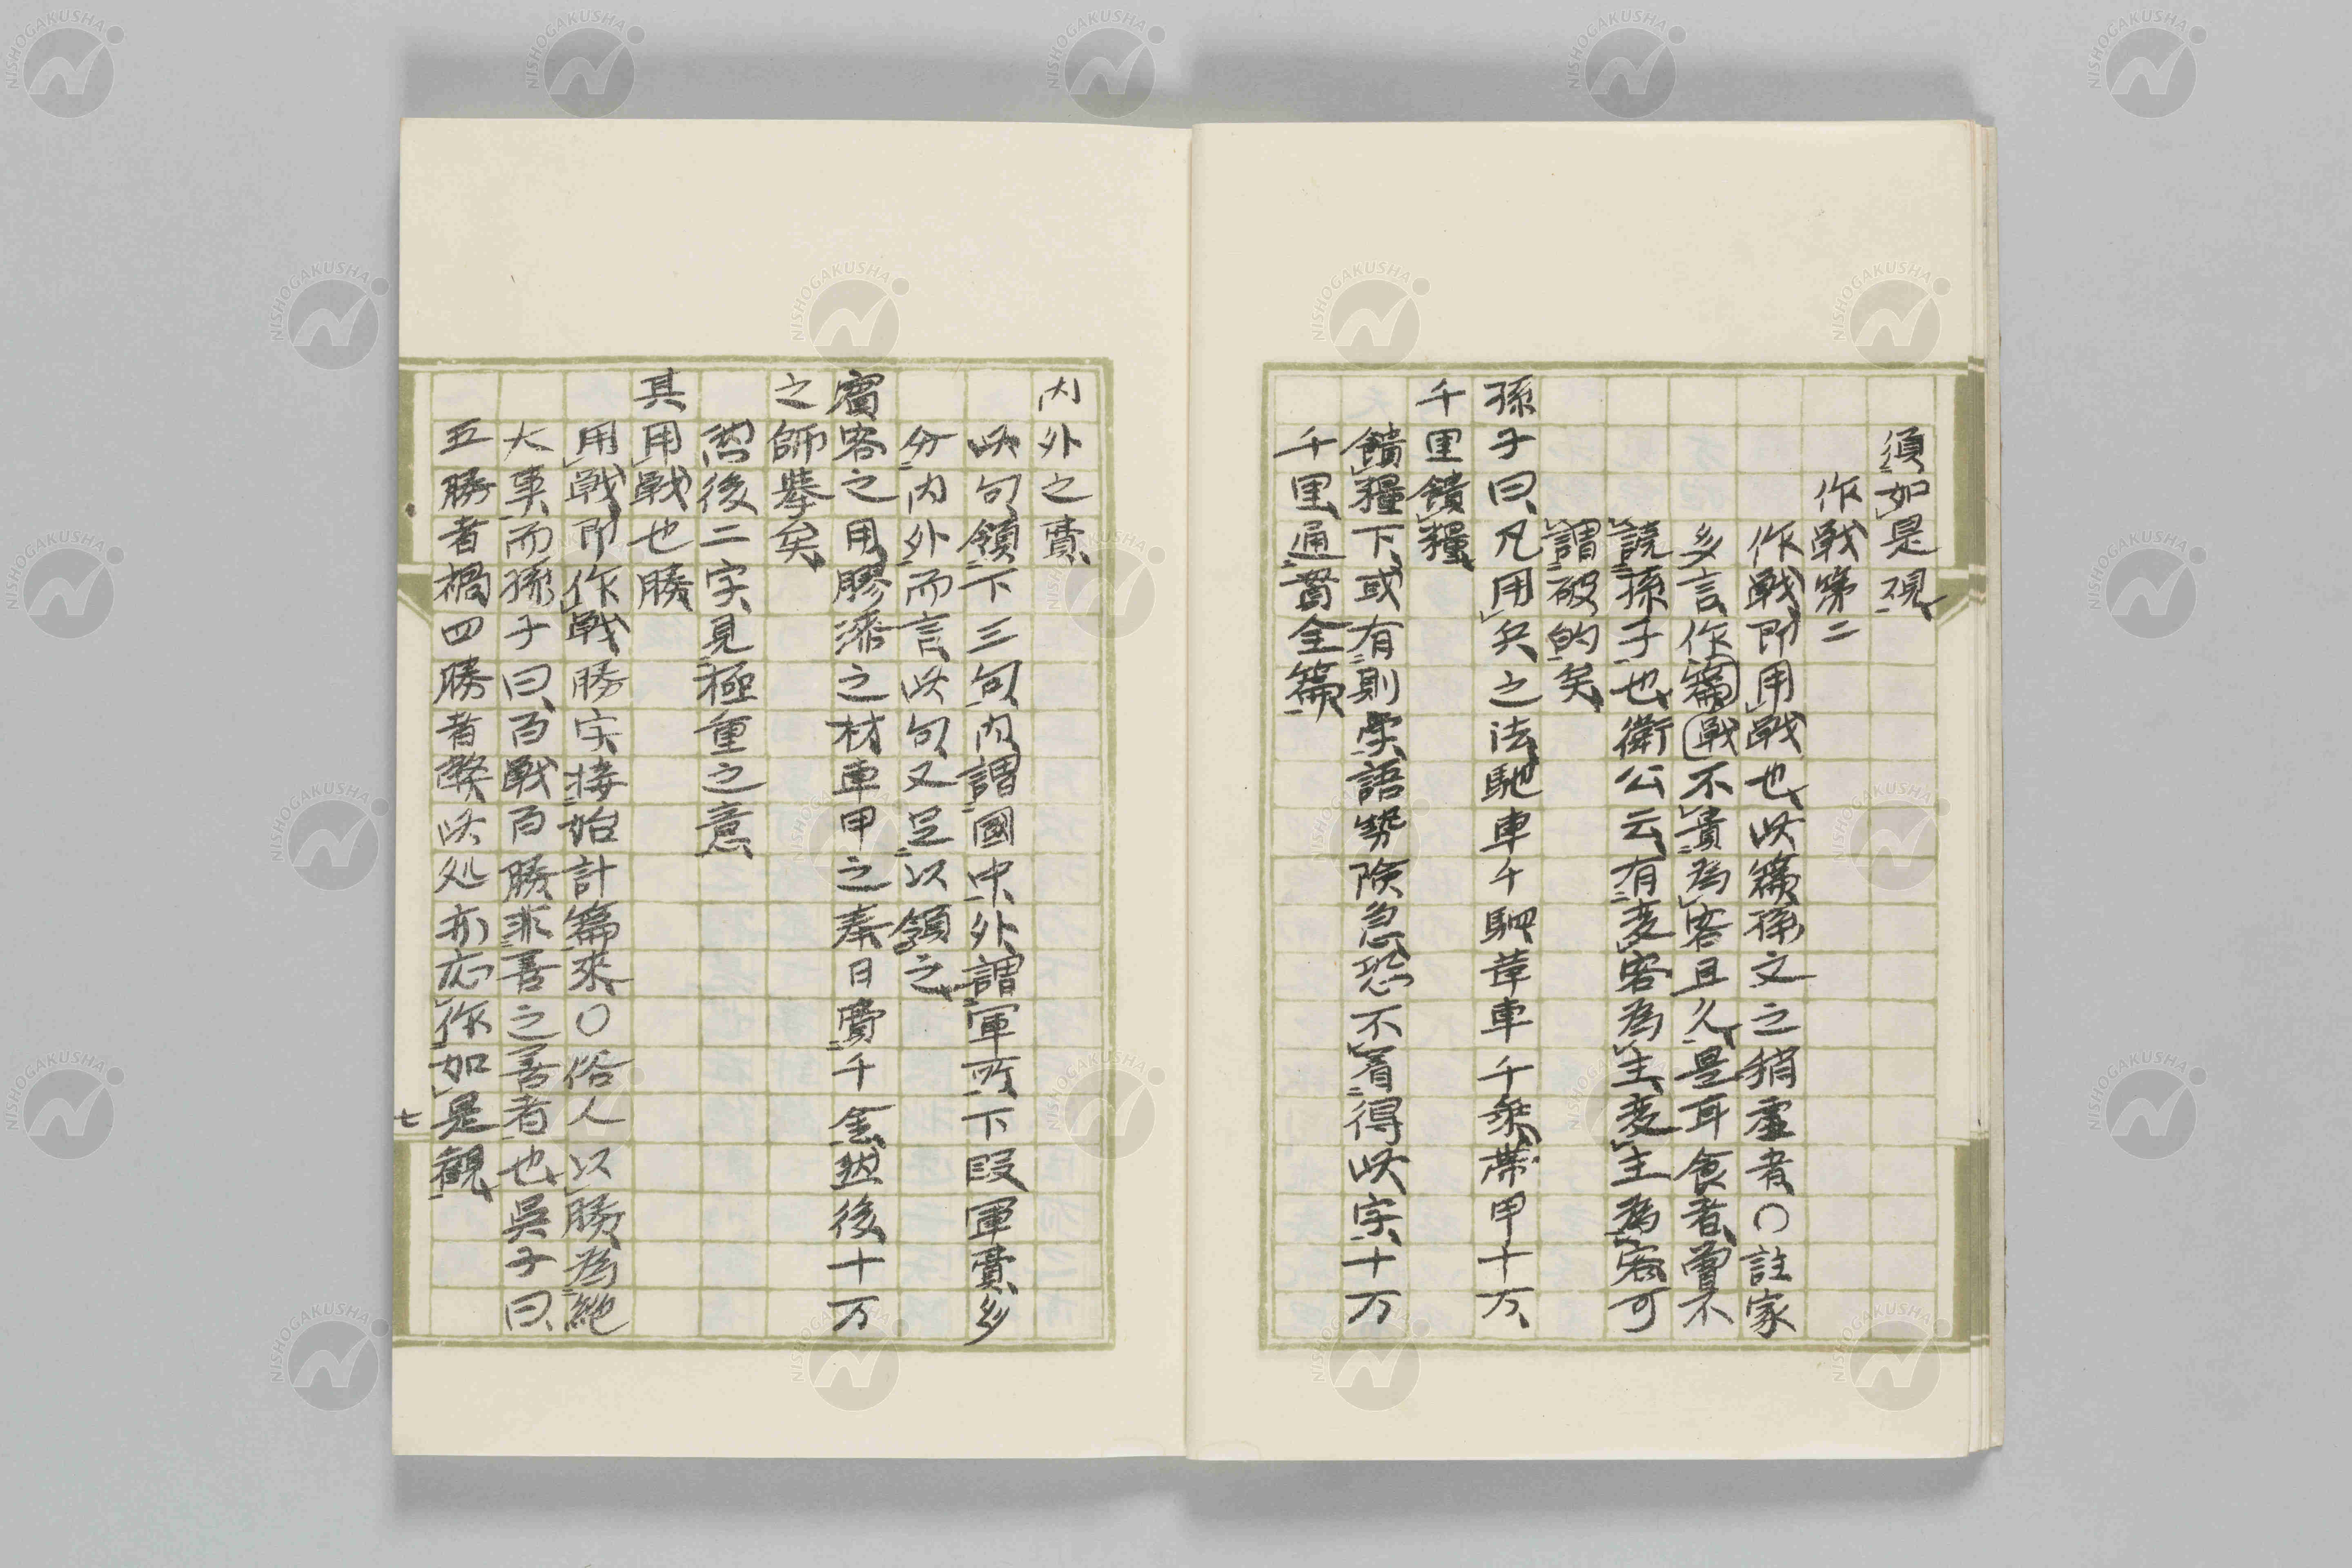 須如是視
作戰第二
作戰即用戰也此篇孫文之稍虛者〇註家
多言作篇戰不貴為客且久是耳食者曽不
読孫子也衛公云有変客為主変主為客可
謂破的矣
孫子曰凡用兵之法馳車千駟革車千乗帯甲十万
千里饋糧
饋糧下或有則字語勢険急恐不着得此字十万
千里通貫全篇
内外之費
此句領下三句内謂國中外謂軍所下段軍費多
分内外而言此句又足以領之
賓客之用膠漆之材車甲之奉日費千金然後十万
之師挙矣
然後二字見極重之意
其用戰也勝
用戰即作戰勝字接始計篇来〇俗人以勝為絶
大事而孫子曰百戰百勝非善之善者也吳子曰
五勝者禍四勝者弊此処亦応作如是観
七
NISHOGAKUSHA